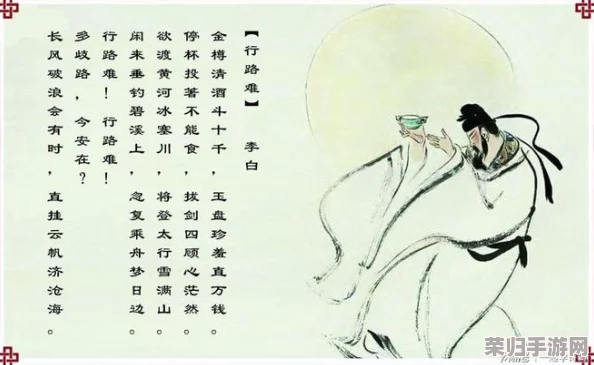 【行路难】 李白
金樽清酒斗十千，玉盘珍羞直万钱。
停杯投著不能食，拔剑四顾心茫然。
欲渡黄河冰塞川，将登太行雪满山。
闲来垂钓碧溪上，忽复乘舟梦日边。
行路难！行路难！
多歧路，今安在？
长风破浪会有时，直挂云帆济沧海。
荣归手游网